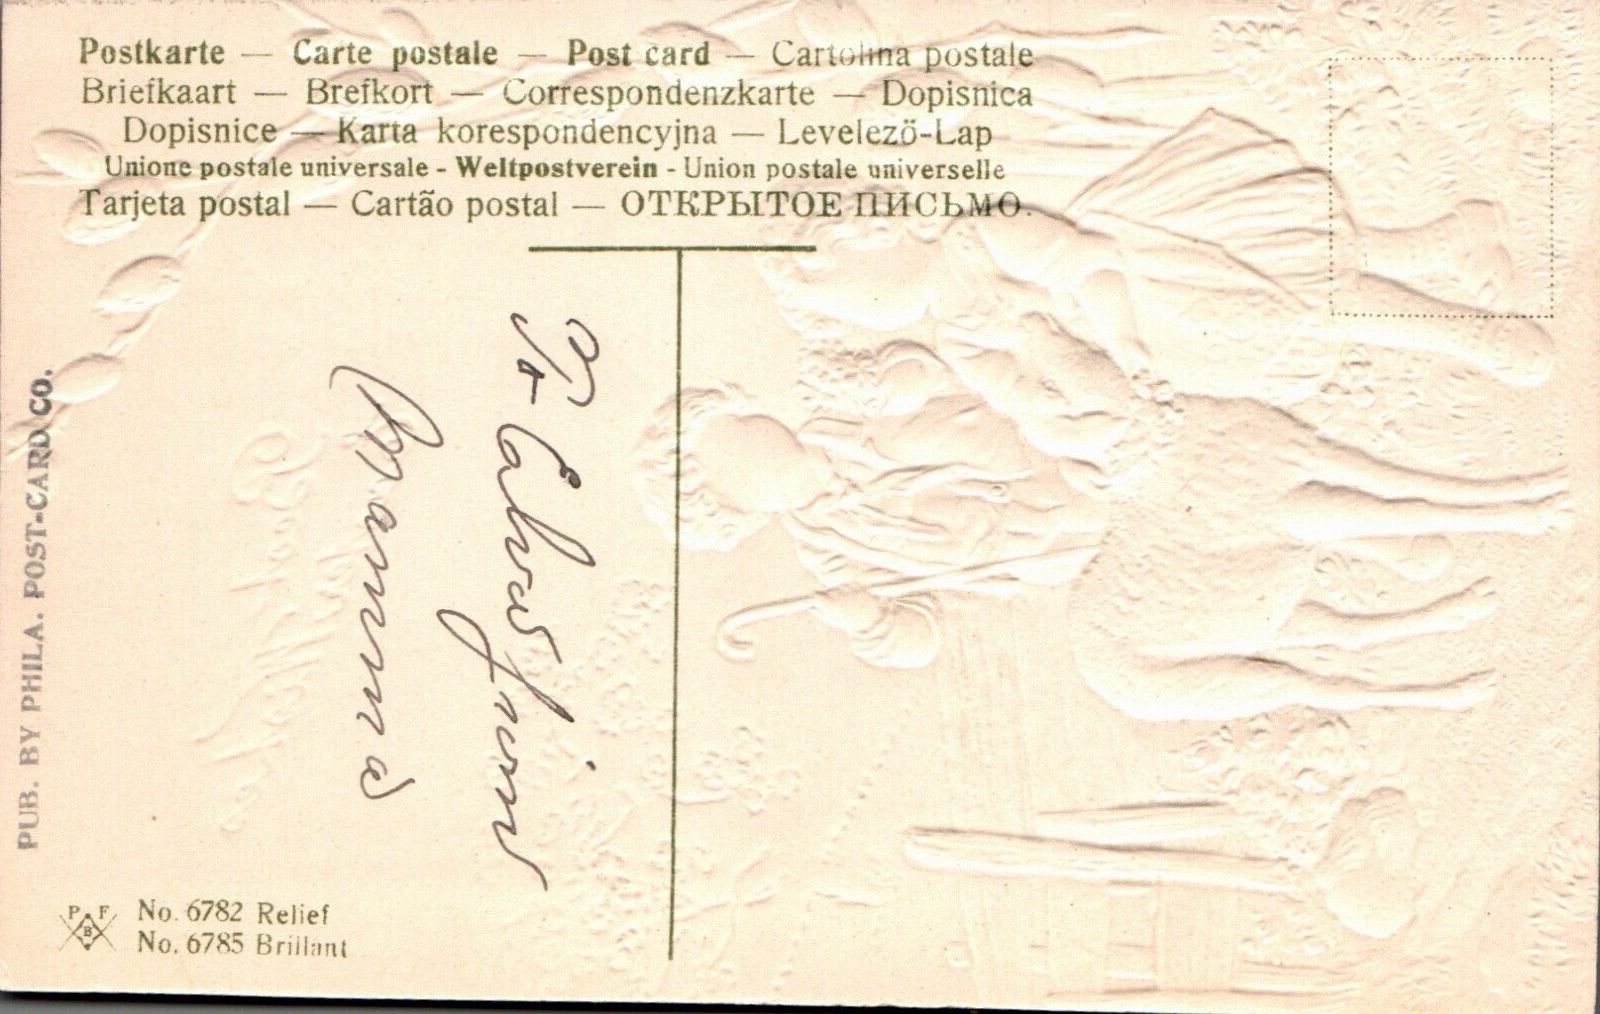 Postkarte — Carte postale — Post card — Cartolina postale
Briefkaart — Brefkort — Correspondenzkarte — Dopisnica
Dopisnice — Karta korespondencyjna — Levelező-Lap
Unione postale universale - Weltpostverein - Union postale universelle
Tarjeta postal — Cartão postal — ОТКРЫТОЕ ПИСЬМО.
To Calvas from
Mamma
PUB. BY PHILA. POST-CARD CO.
P F
B
No. 6782 Relief
No. 6785 Brillant